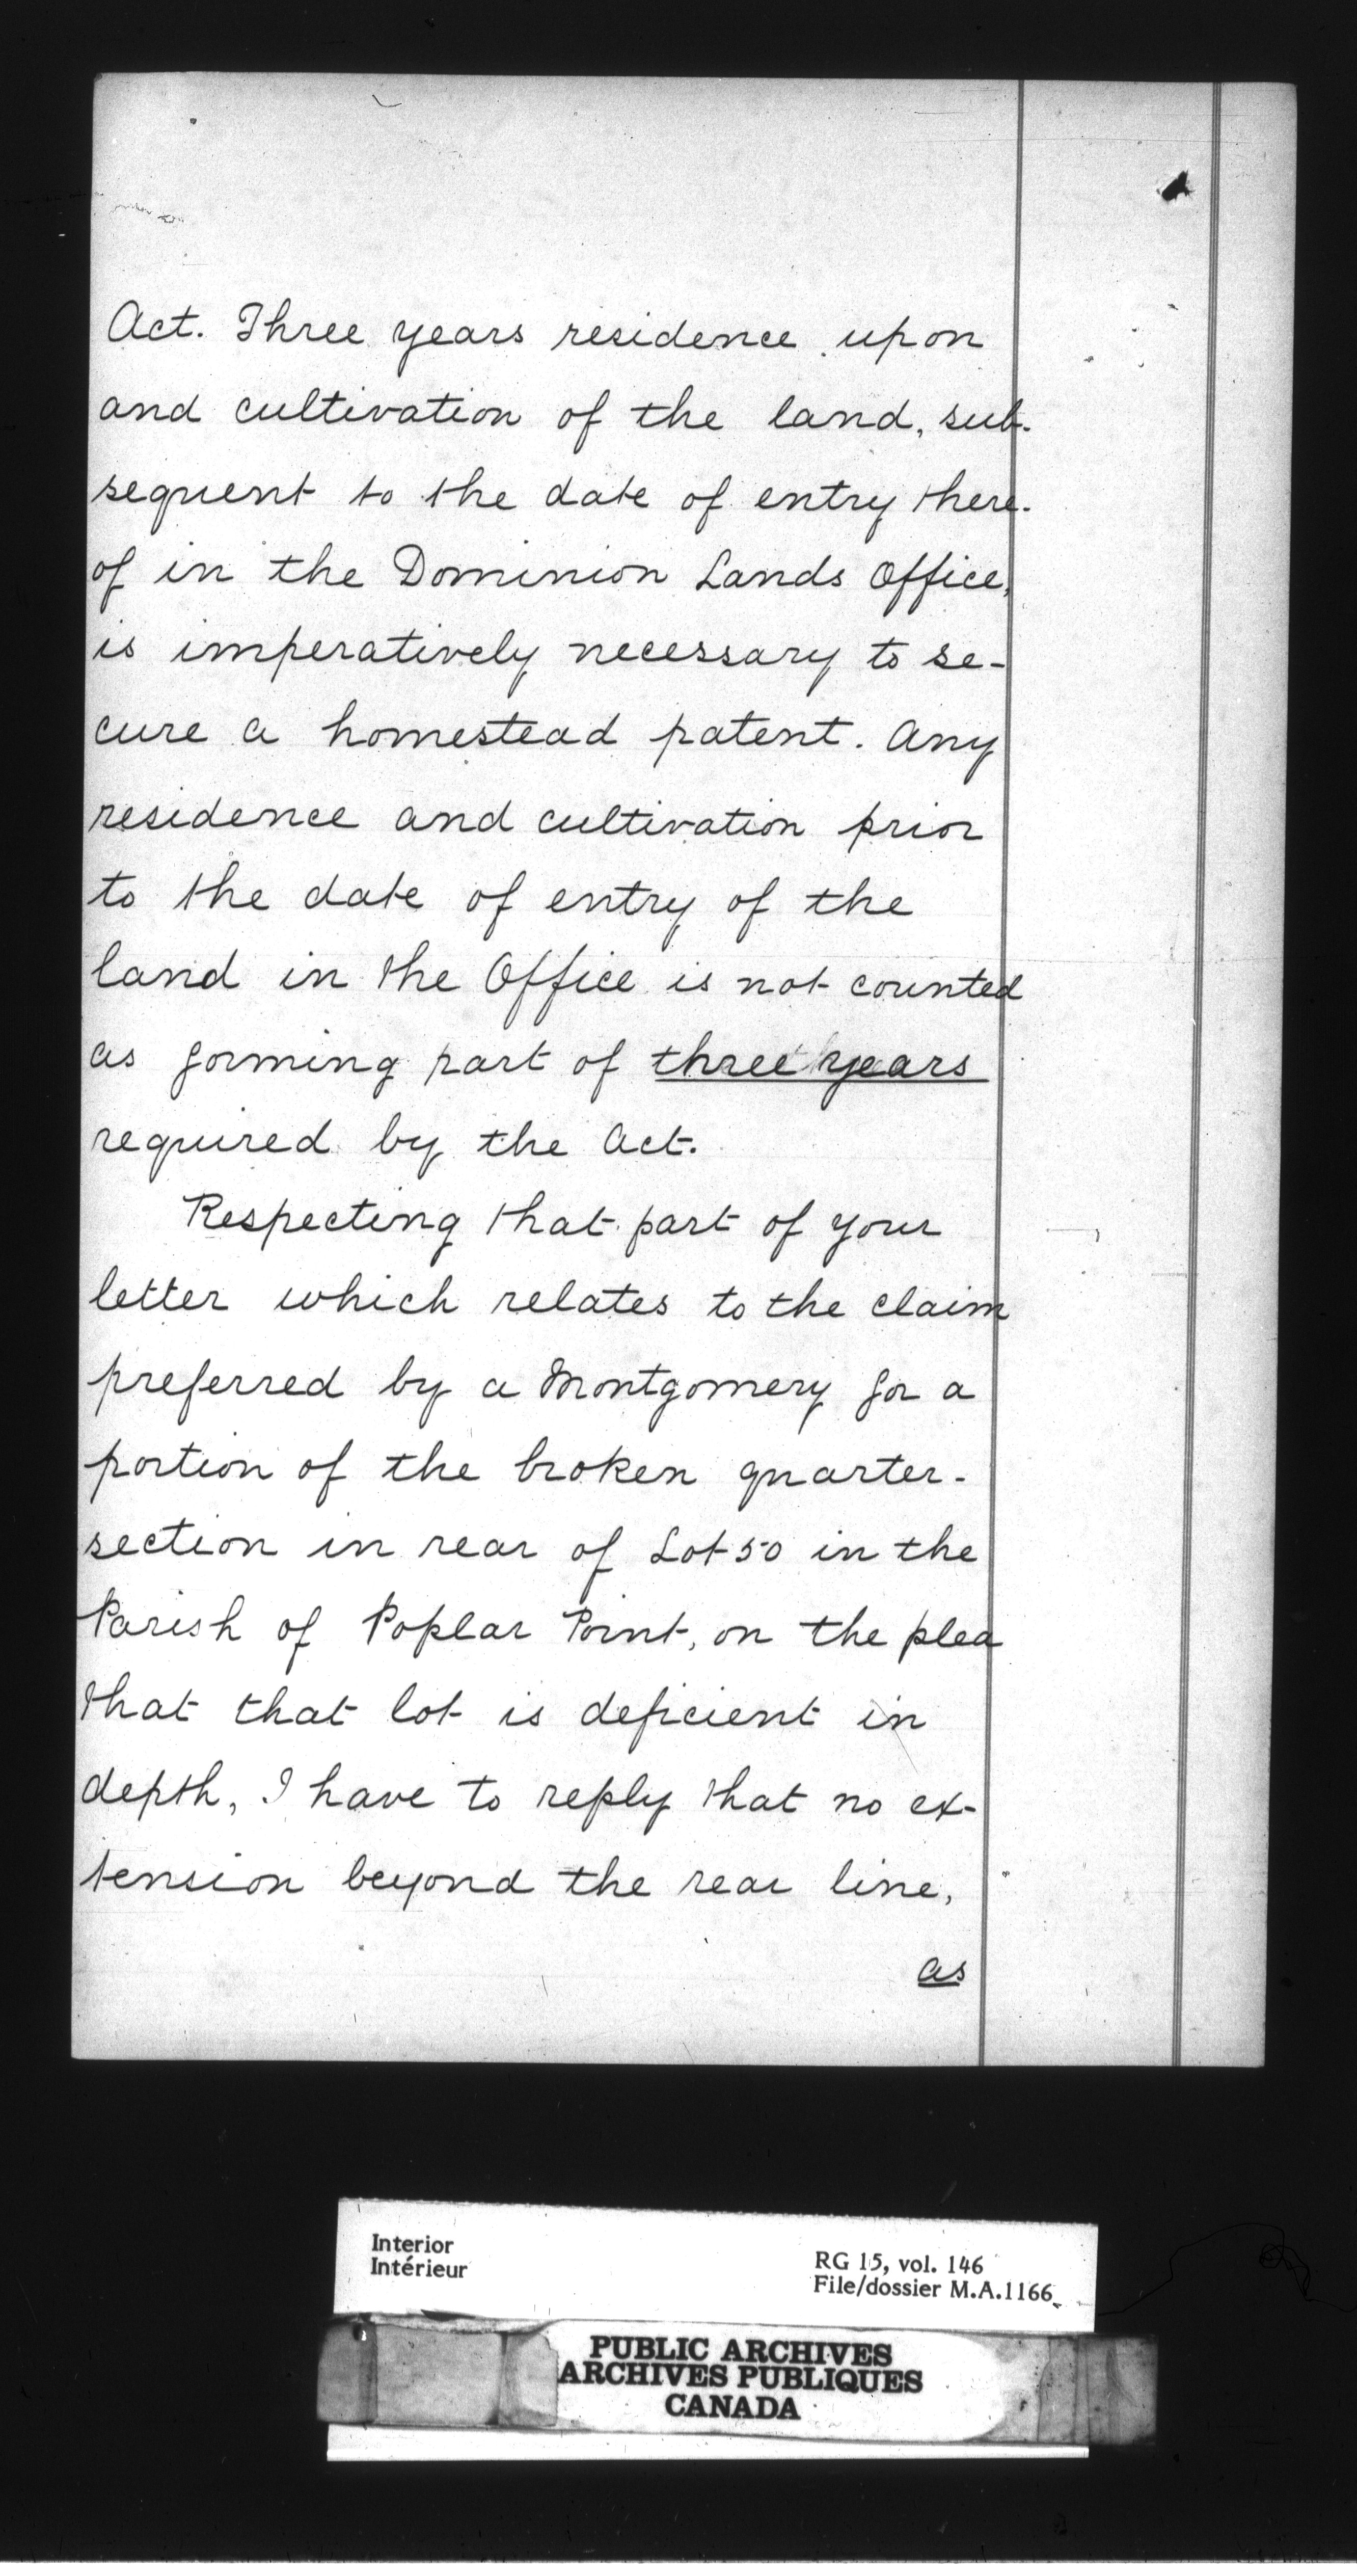 Act. Three years residence upon
and cultivation of the land, sub-
sequent to the date of entry there-
of in the Dominion Lands Office,
is imperatively necessary to se-
cure a homestead patent. Any
residence and cultivation prior
to the date of entry of the
land in the Office is not counted
as forming part of three years
required by the Act.
Respecting that part of your
letter which relates to the claim
preferred by a Montgomery for a
portion of the broken quarter-
section in rear of Lot 50 in the
Parish of Poplar Point, on the plea
that that lot is deficient in
depth, I have to reply that no ex-
tension beyond the rear line,
as
Interior
Intérieur
RG 15, vol. 146
File/dossier M.A.1166
PUBLIC ARCHIVES
ARCHIVES PUBLIQUES
CANADA